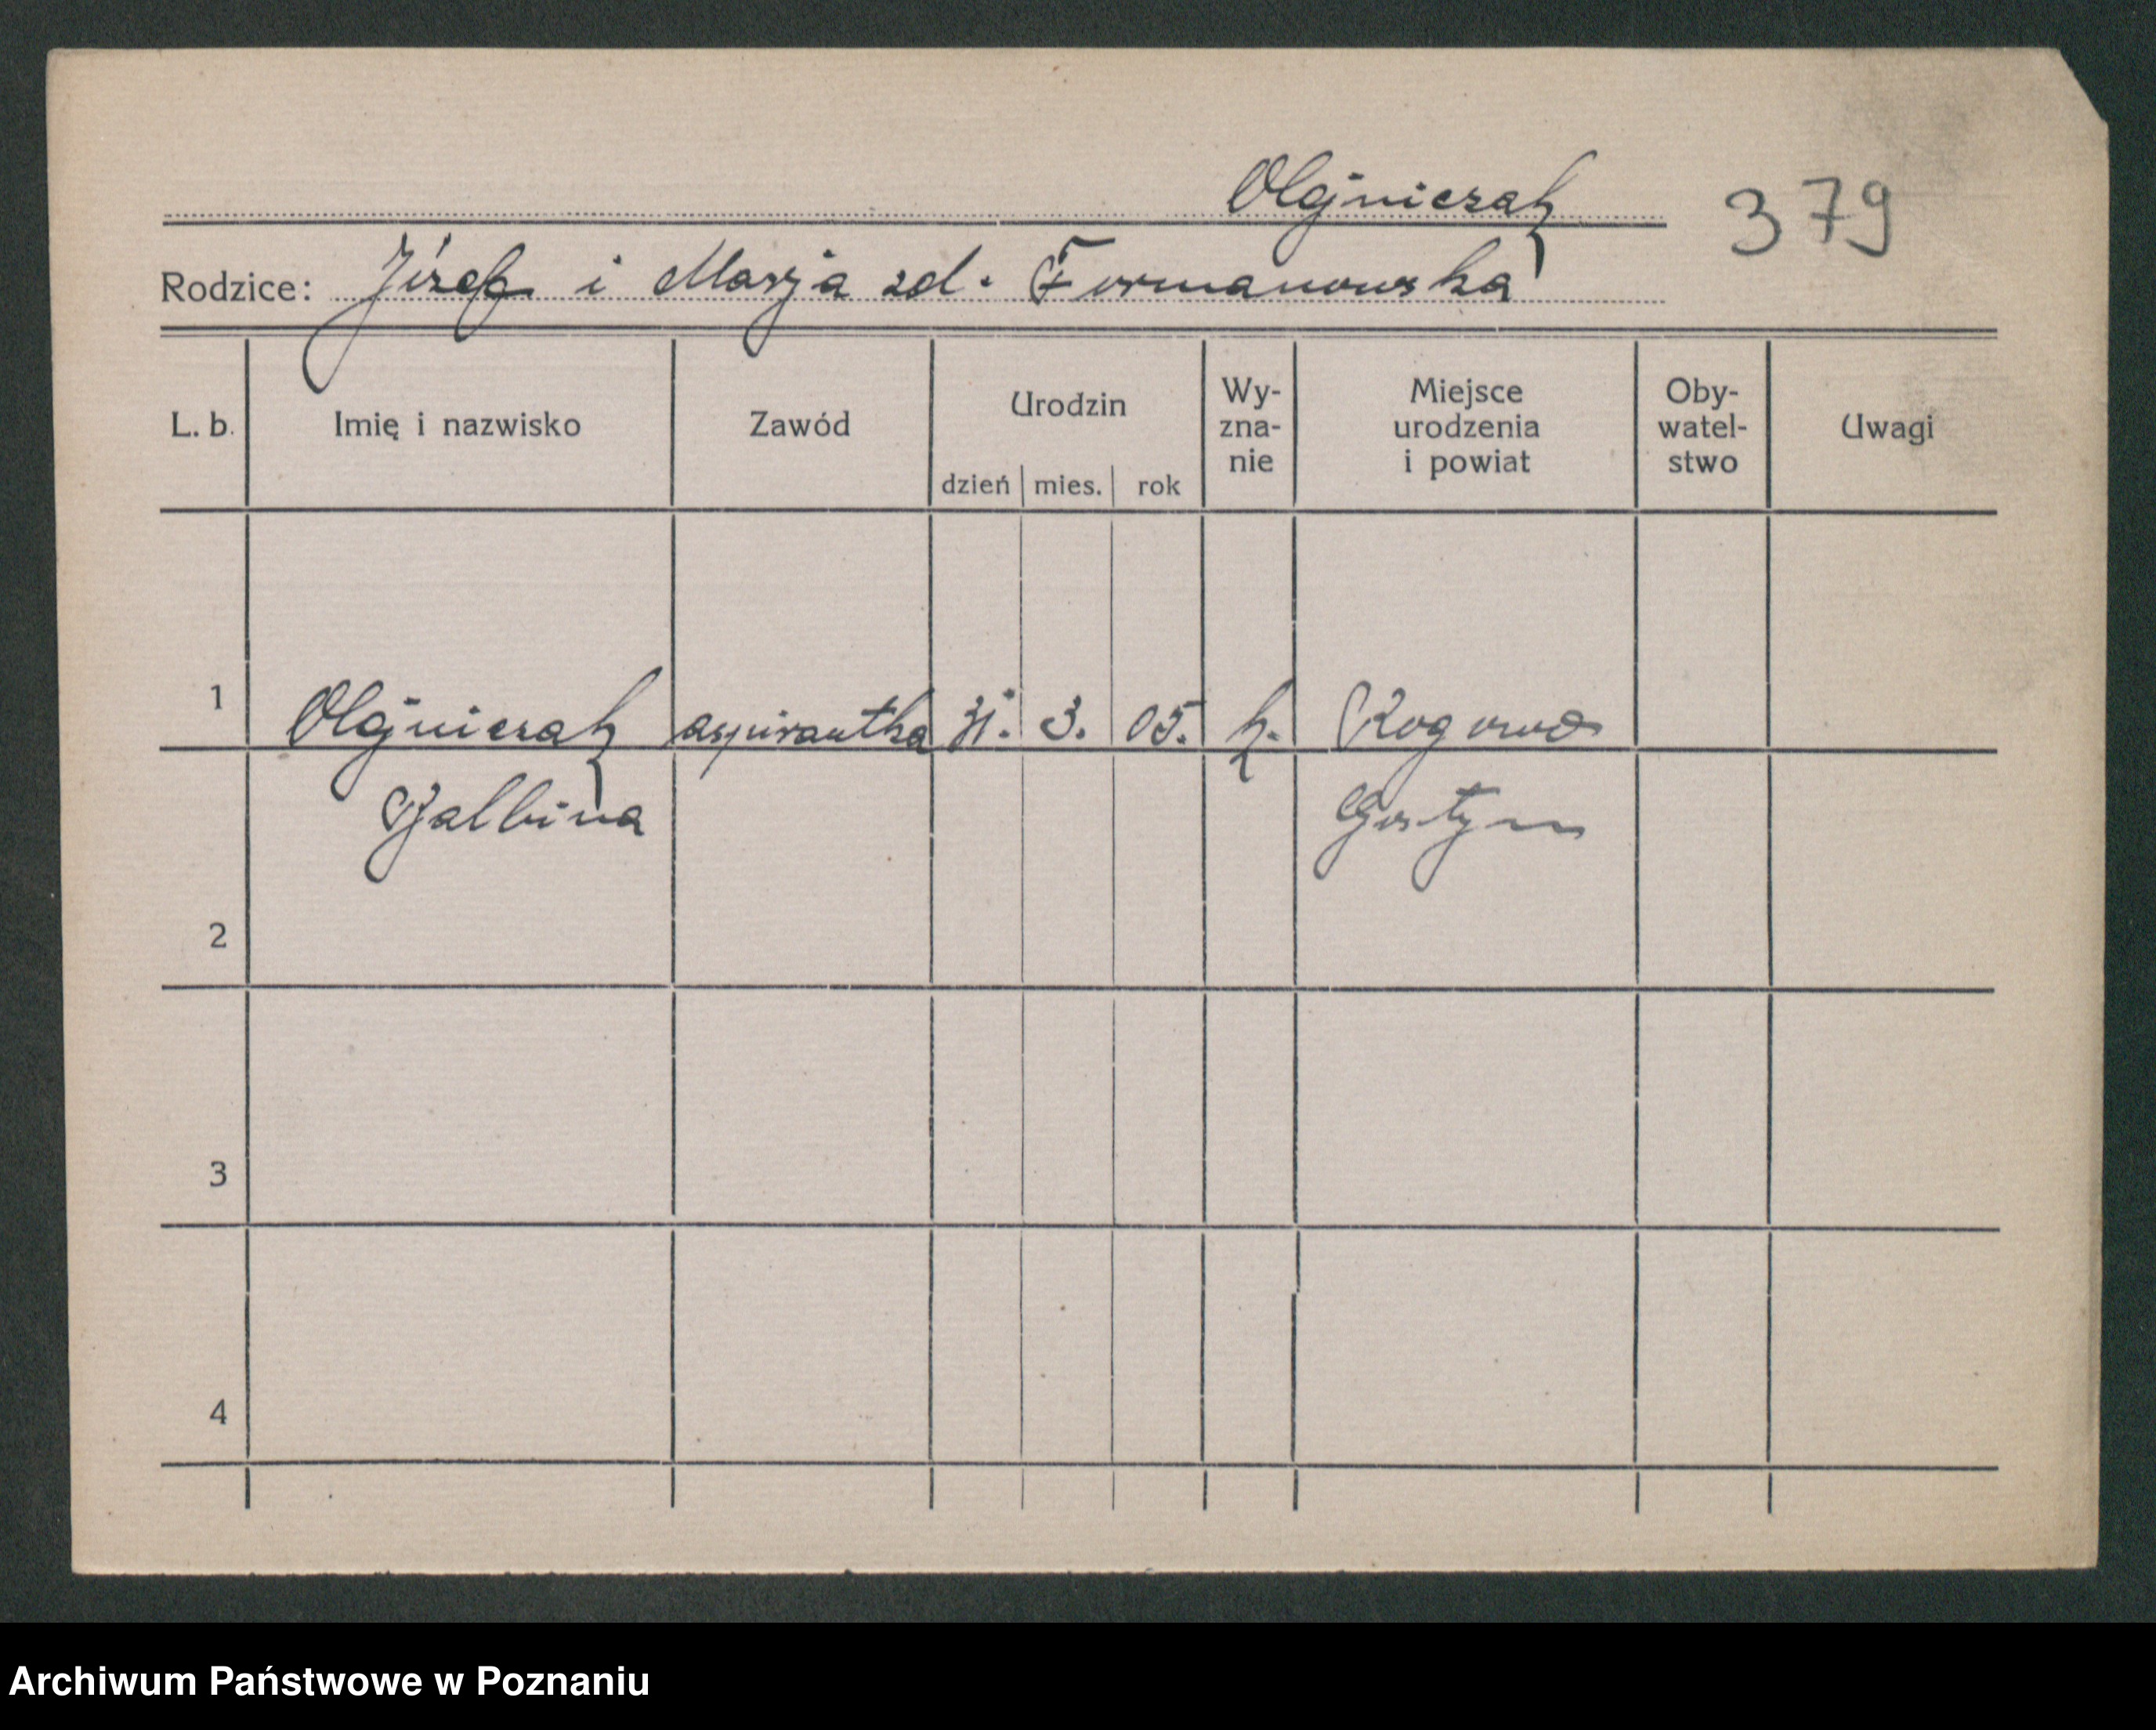 Olejniczak 379
Rodzice: Józef i Marja zd. Furmanowska
L. b. Imię i nazwisko Zawód Urodzin dzień mies. rok Wy-zna-nie Miejsce urodzenia i powiat Oby-watel-stwo Uwagi
1 Olejniczak aspirantka 31. 3. 05. k. Rogowo
Balbina Gostyn
2
3
4
Archiwum Państwowe w Poznaniu